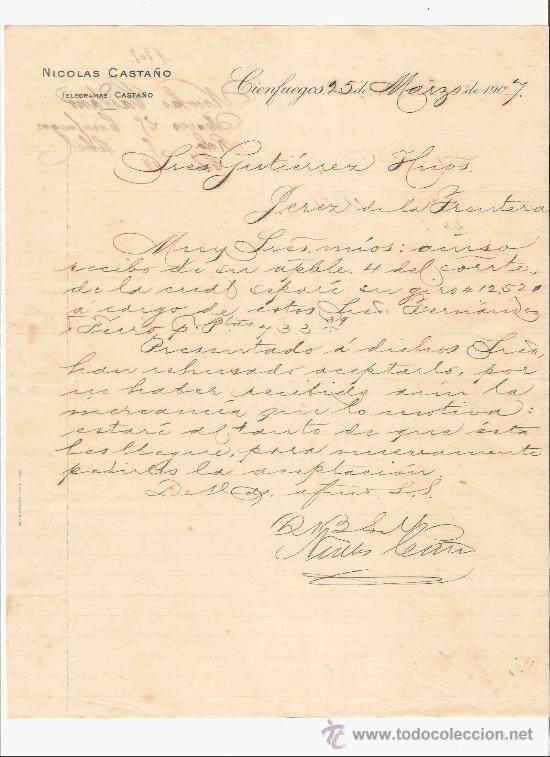 NICOLAS CASTAÑO
TELEGRAMAS: CASTAÑO
Cienfuegos, 25 de Marzo de 1907.
Sres. Gutiérrez Hijos.
Jerez de la Frontera
Muy Sres. mios: acuso
recibo de su apble. 4 del cor̃te.,
de la cual separé su giro # 12520
a cargo de estos Sres. Fernández
y Ferro p. Ptas 433 39
Presentado á dichos Sres.
han rehusado aceptarlo, por
no haber recibido aún la
mercancía que lo motiva:
estaré al tanto de que ésta
les llegue, para nuevamente
pedirles la aceptación
De Vds. afmo S.S.
Q B S M
Nicolás Castaño
www.todocoleccion.net